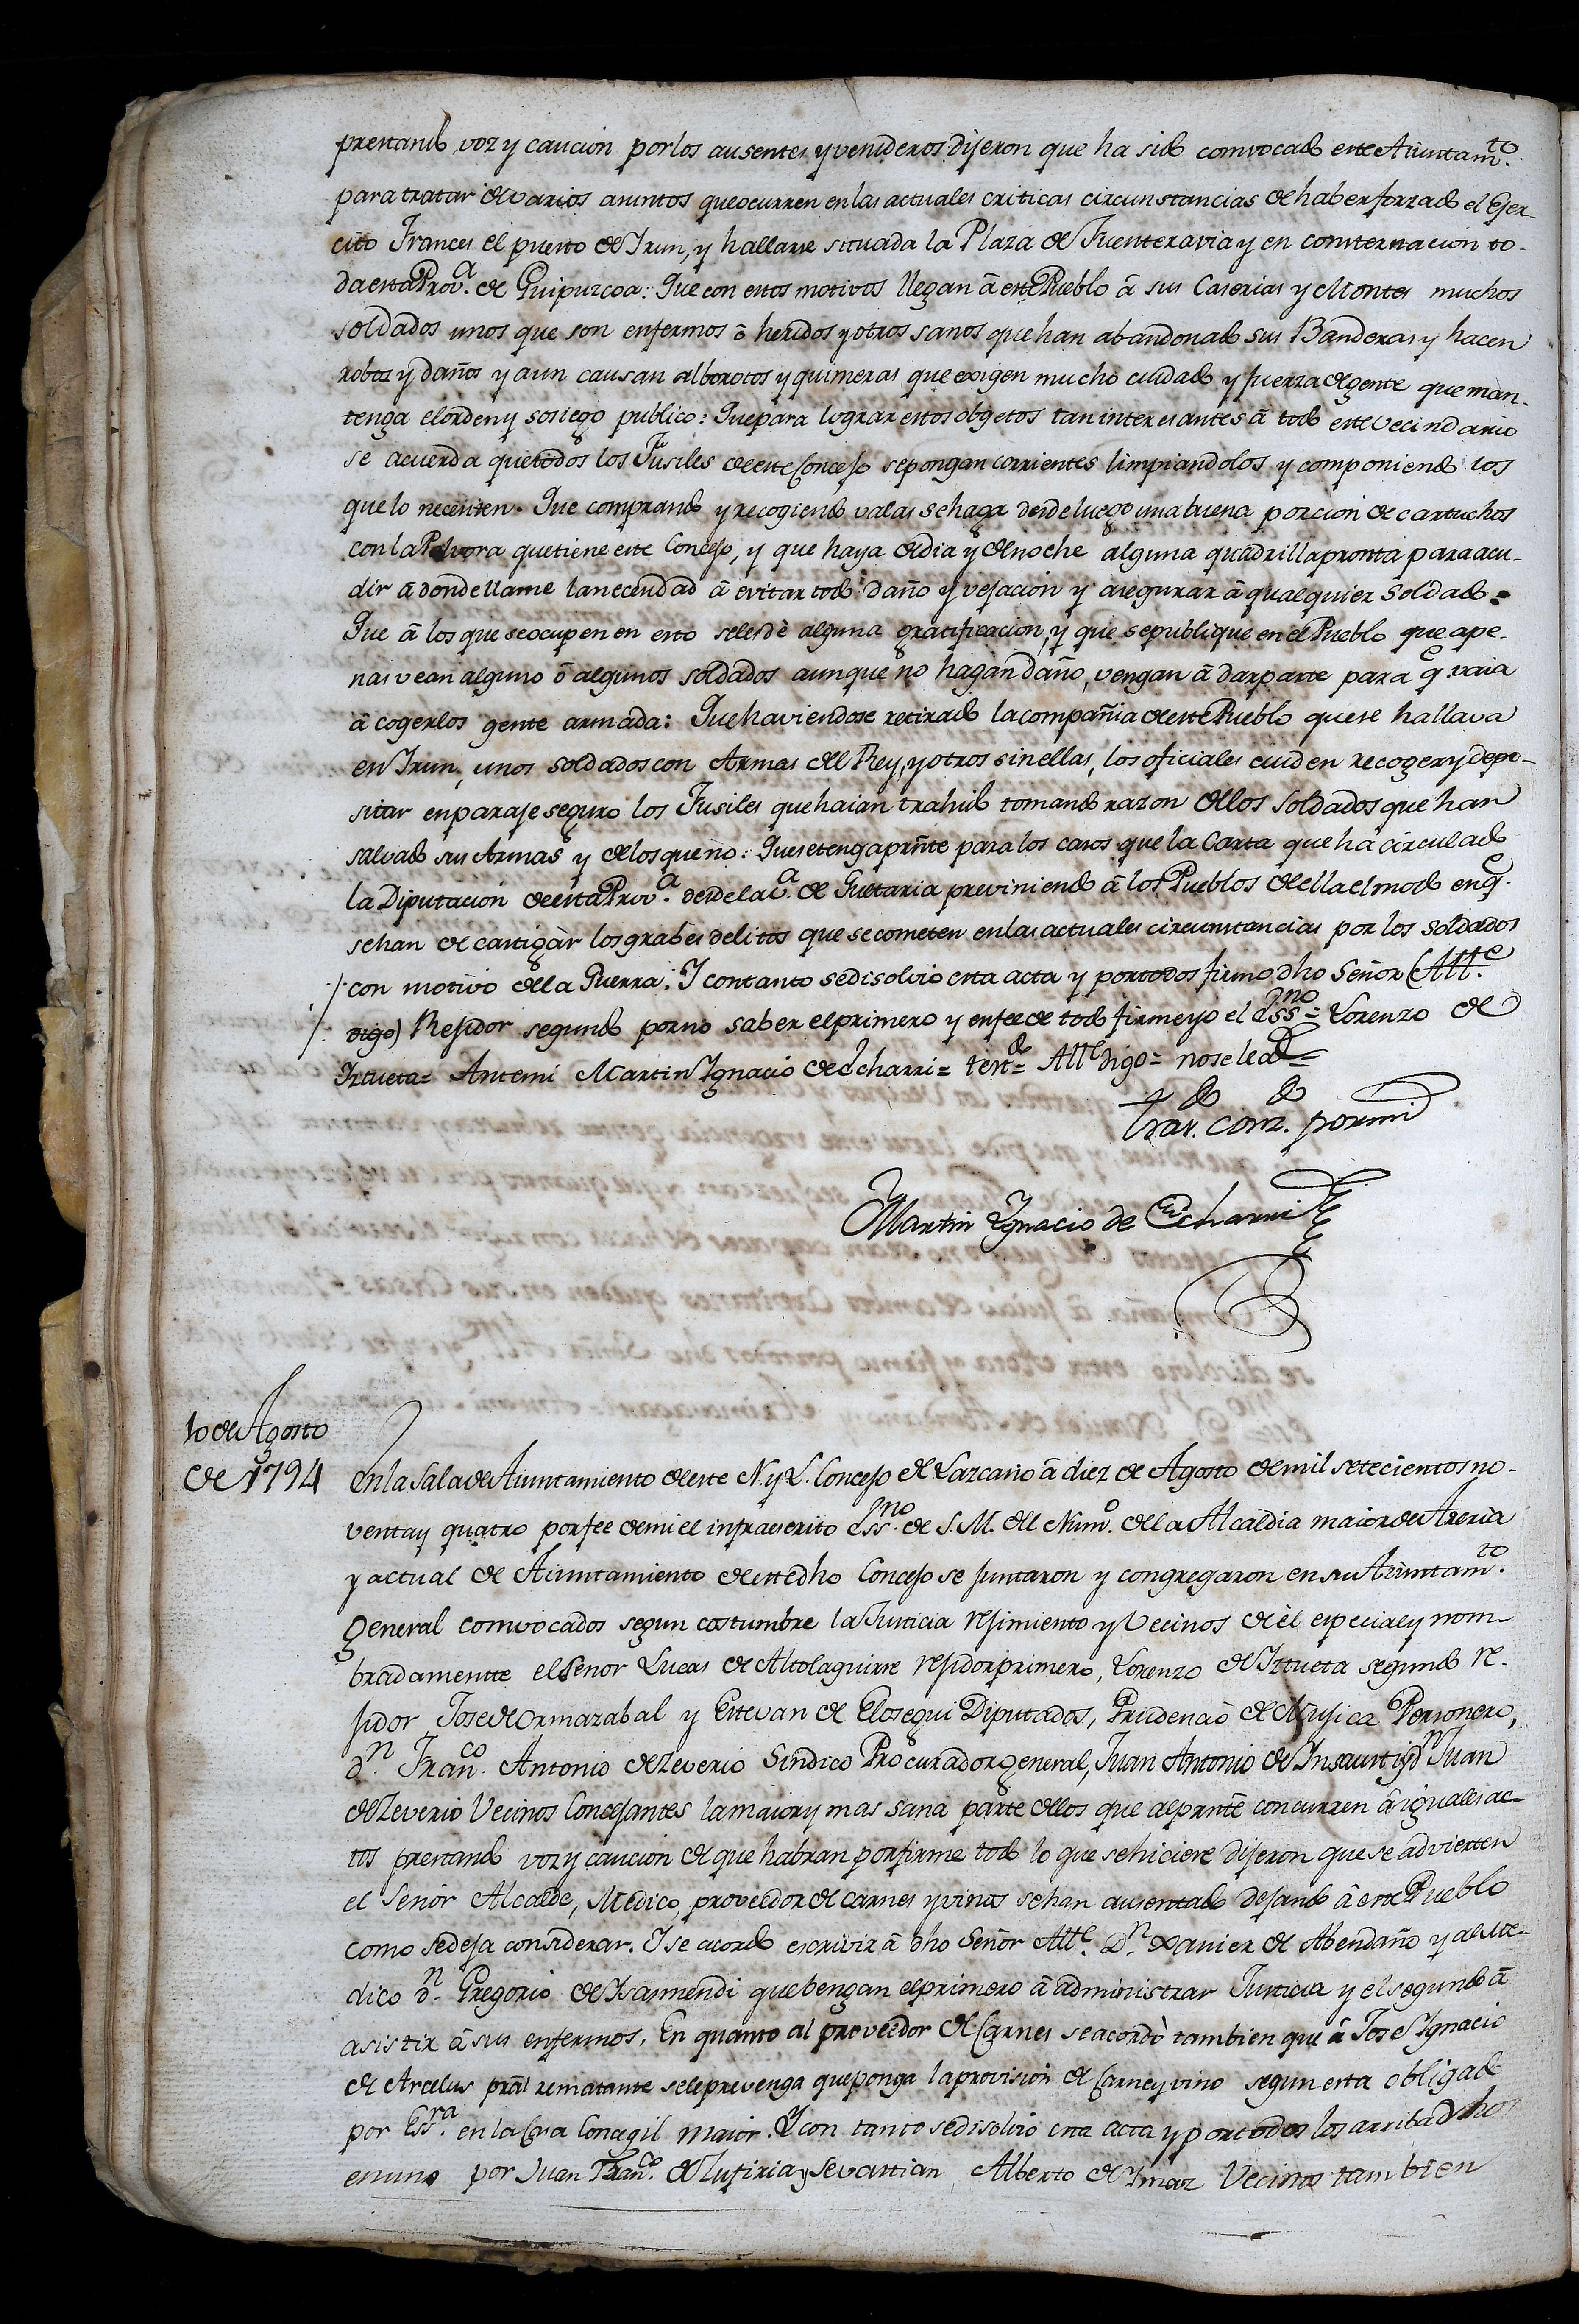 prestando voz y caucion por los ausentes y venideros dijeron que ha sido comvocado este Aiuntam.to
para tratar de varios asuntos que ocurren en las actuales criticas circunstancias de haber forzado el Exer-
cito Frances el puesto de Irun, y hallarse situada la Plaza de Fuenteravia y en consternacion to-
da esta Prov.a de Guipuzcoa: Que con estos motivos llegan â este Pueblo â sus Caserias y Montes muchos
soldados unos que son enfermos ô heridos y otros sanos que han abandonado sus Banderas y hacen
robos y daños y aun causan alborotos y quimeras que exigen mucho cuidado y fuerza de gente que man-
tenga el órden y sosiego publico: Que para lograr estos obgetos tan interesantes â todo este vecindario
se acuerda que todos los Fusiles de este Concejo se pongan corrientes limpiandolos y componiendo los
que lo necesiten. Que comprando y recogiendo valas se haga desde luego una buena porcion de cartuchos
con la Polvora que tiene este Concejo, y que haya de dia y de noche alguna quadrilla pronta para acu-
dir â donde llame la necesidad â evitar todo daño y vejacion y asegurar â qualquier Soldado.
Que â los que se ocupen en esto se les dè alguna gratificacion, y que se publique en el Pueblo que ape-
nas vean alguno ô algunos soldados aunque no hagan daño, vengan â dar parte para q.e vaia
â cogerlos gente armada: Que haviendose retirado la compañia de este Pueblo que se hallava
en Irun, unos soldados con Armas del Rey, y otros sin ellas, los oficiales cuiden recoger y depo-
sitar en paraje seguro los Fusiles que haian trahido tomando razon de los soldados que han
salvado sus Armas y de los que no: Que se tenga prñte para los casos que la Carta que ha circulado
la Diputacion de esta Prov.a desde la v.a de Guetaria previniendo â los Pueblos de ella el modo en q.e
se han de castigàr los grabes delitos que se cometen en las actuales circunstancias por los soldados
con motivo de la Guerra. Y con tanto se disolvio esta acta y por todos firmo dho Señor (Alc.e
digo) Rejidor segundo por no saber el primero y en fee de todo firme yo el Ess.no = Lorenzo de
Iztueta = Antemi Martin Ygnacio de Echarri = test.do = Alc.e digo = no se lea =
tras.do conz.do por mi
Martin Ygnacio de Echarri
10 de Agosto
de 1794
En la Sala de Aiuntamiento de este N. y L. Concejo de Lazcano â diez de Agosto de mil setecientos no-
venta y quatro por fee de mi el infraescrito Ess.no de S. M. del Num.o de la Alcaldia maior de Areria
y actual de Aiuntamiento de este dho Concejo se juntaron y congregaron en su Aiuntam.to
General comvocados segun costumbre la Justicia rejimiento y Vecinos de èl especial y nom-
bradamentte el Señor Lucas de Altolaguirre rejidor primero, Lorenzo de Iztueta segundo re-
jidor Jose de Ormazabal y Estevan de Elosegui Diputados, Prudencio de Mujica Personero,
d.n Fran.co Antonio de Zeverio Sindico Procurador general, Juan Antonio de Insausti y d.n Juan
de Zeverio Vecinos Concejantes la maior y mas sana parte de los que al prñte concurren â iguales ac-
tos prestando voz y caucion de que habran por firme todo lo que se hiciere dijeron que se advierten
el Señor Alcalde, Medico, proveedor de carnes y vinos se han ausentado dejando â este Pueblo
como se deja considerar. Y se acordo escrivir â dho Señor Alc.e D.n Xavier de Abendaño y al Me-
dico d.n Gregorio de Isasmendi que bengan el primero â administrar Justicia y el segundo â
asistir â sus enfermos. En quanto al proveedor de Carnes se acordò tambien que â Jose Ygnacio
de Arcelus prãl rematante se le prevenga que ponga la provision de Carne y vino segun esta obligado
por Ess.ra en la Casa Concegil maior. Y con tanto se disolvio esta acta y por todos los arriba dhos
en uno por Juan Fran.co de Lujiria y Sevastian Alberto de Imaz Vecinos tambien